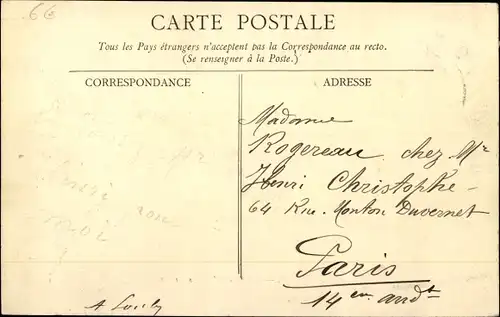 CARTE POSTALE
Tous les Pays étrangers n'acceptent pas la Correspondance au recto.
(Se renseigner à la Poste.)
CORRESPONDANCE
ADRESSE
Madame
Rogereau chez Mr
Henri Christophe
64 Rue Mouton Duvernet
Paris
14em arrdt